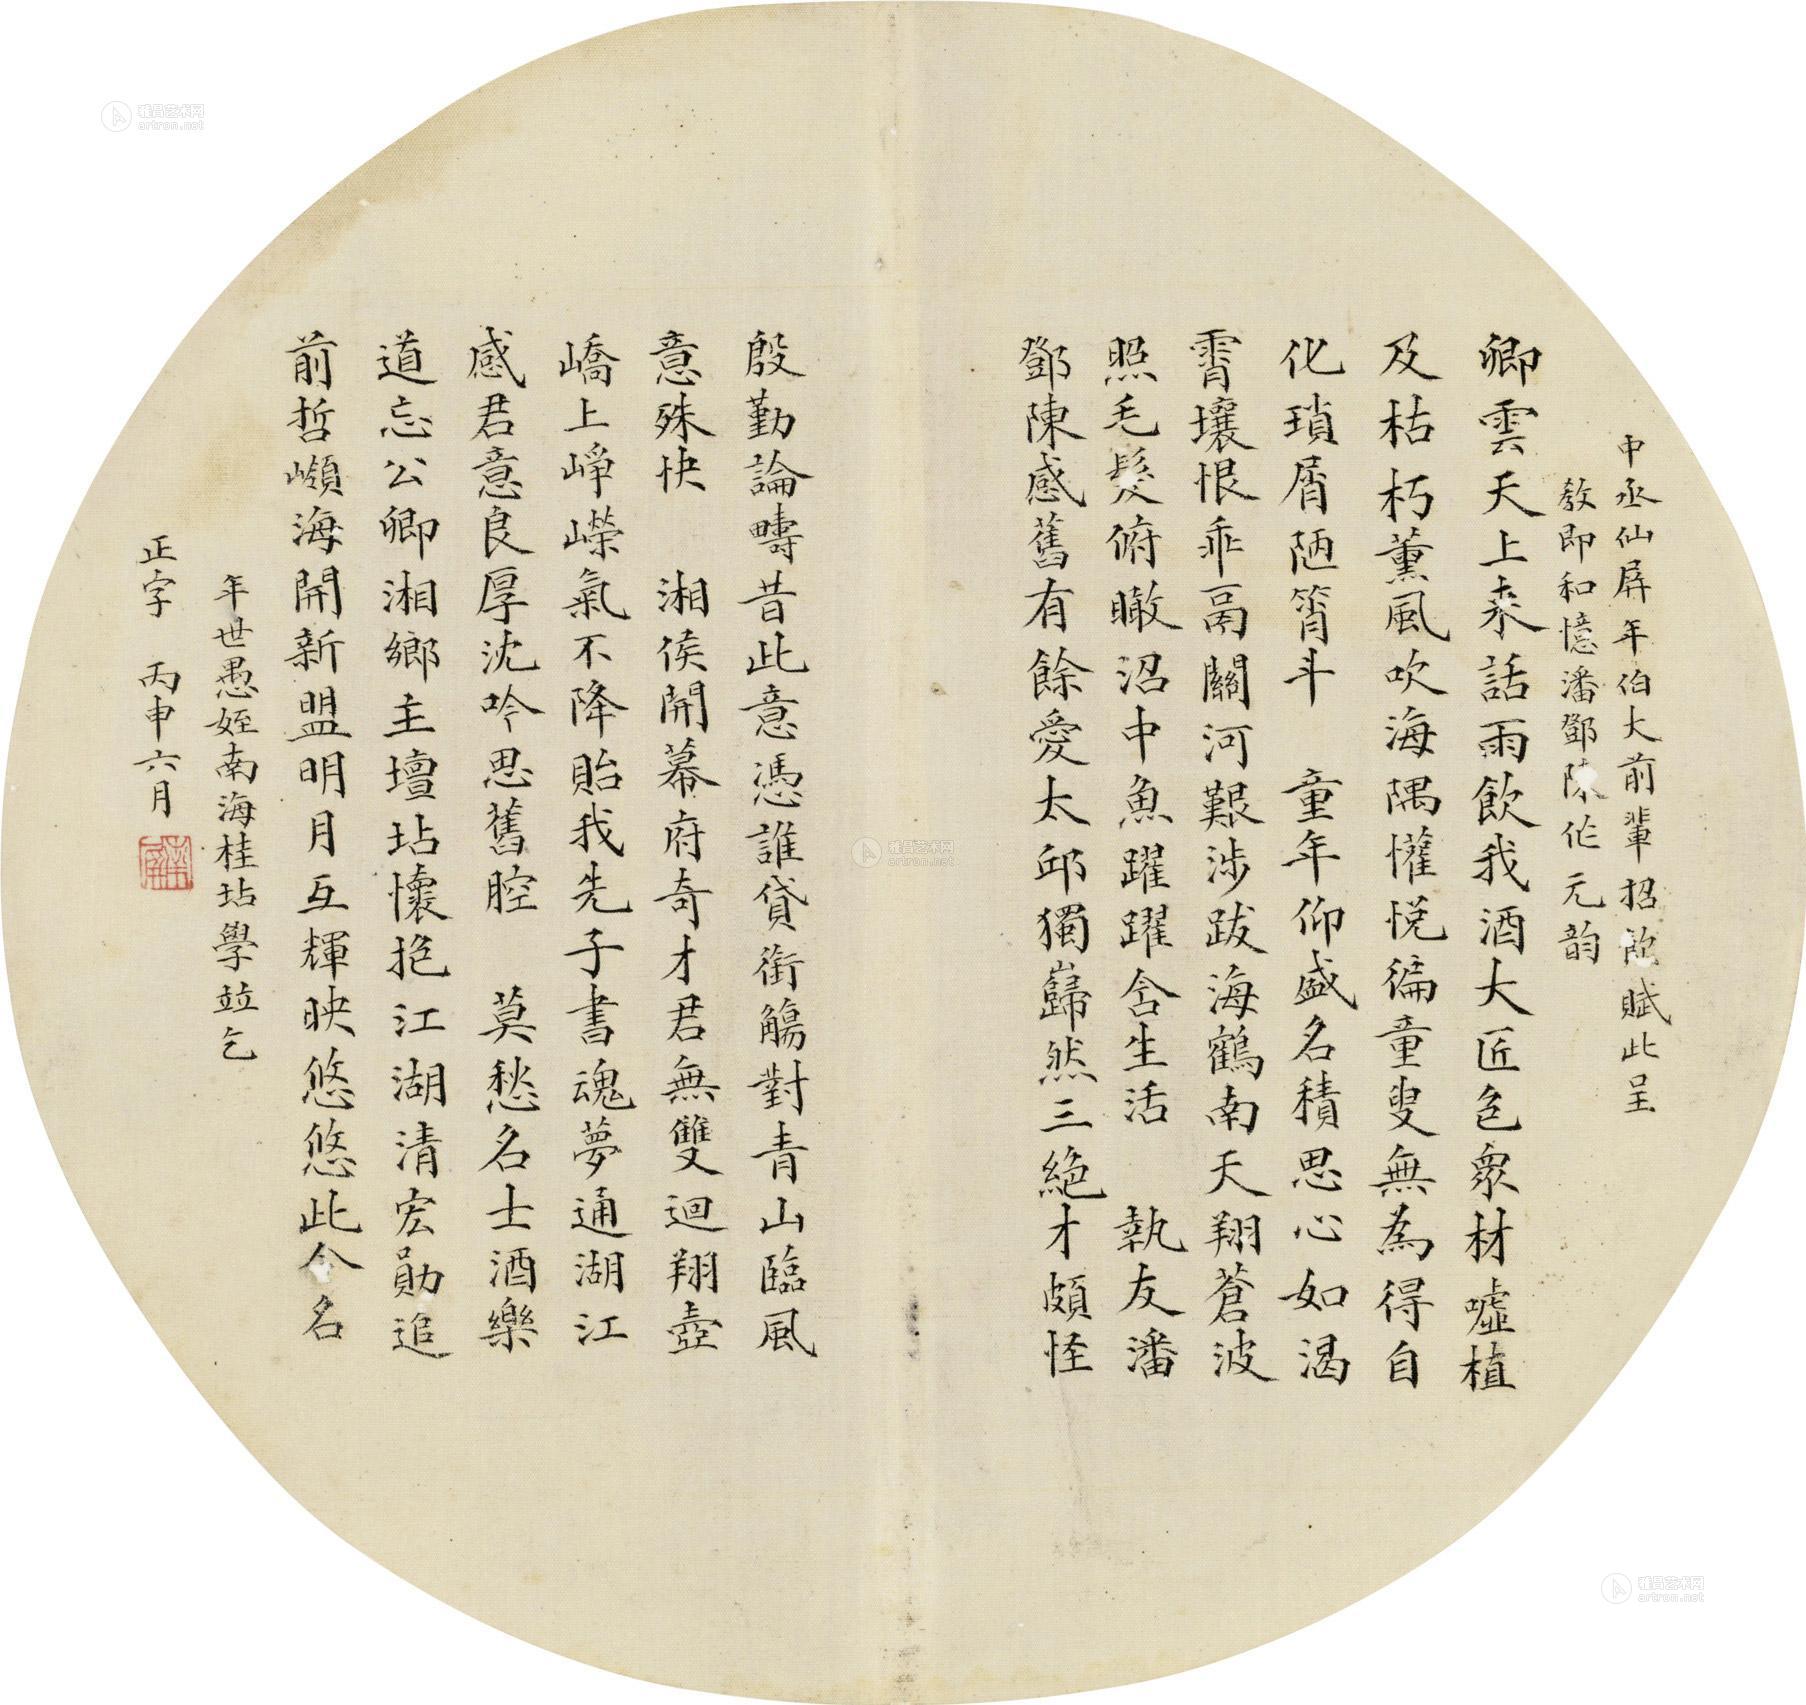 中丞仙屏年伯大前輩招飲賦此呈
教即和憶潘鄧陳作元韵
卿雲天上来話雨飲我酒大匠色衆材噓植
及枯朽薰風吹海隅懽悅徧童叟無為得自
化瑣屑陋筲斗　童年仰盛名積思心如渴
霄壤恨乖鬲關河艱涉跋海鶴南天翔蒼波
照毛髮俯瞰沼中魚躍躍含生活　執友潘
鄧陳感舊有餘愛太邱獨巋然三絕才頗怪
殷勤論疇昔此意憑誰貸銜觴對青山臨風
意殊快　湘侯開幕府奇才君無雙迴翔壺
嶠上崢嶸氣不降貽我先子書魂夢通湖江
感君意良厚沈吟思舊腔　莫愁名士酒樂
道忘公卿湘鄉主壇坫懷抱江湖清宏勛追
前哲嶺海開新盟明月互輝映悠悠此令名
年世愚姪南海桂坫學竝乞
正字　丙申六月
雅昌艺术网
artron.net
雅昌艺术网
artron.net
雅昌艺术网
artron.net